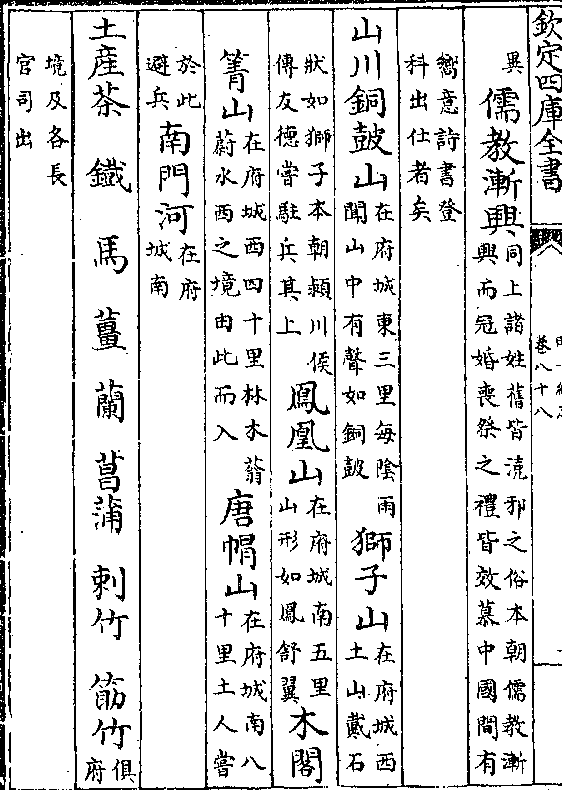 欽定四庫全書
卷八十八
異 儒教漸興 同上諸姓舊皆邪之俗本朝儒教漸
興而冠婚喪祭之禮皆效慕中國間有
嚮意詩書登
科出仕者矣
山川銅皷山 在府城東三里每陰雨
聞山中有聲如銅皷
獅子山 在府城西
土山戴石
狀如獅子本朝潁川侯
傳友德嘗駐兵其上
鳳凰山 在府城南五里
山形如鳳舒翼
木閣
箐山 在府城西四十里林木蓊
蔚水西之境由此而入
唐帽山 在府城南八
十里土人嘗
於此
避兵
南門河 在府
城南
土産茶 鐵 馬 薑 蘭 菖蒲 刺竹 筋竹 俱
府
境及各長
官司出